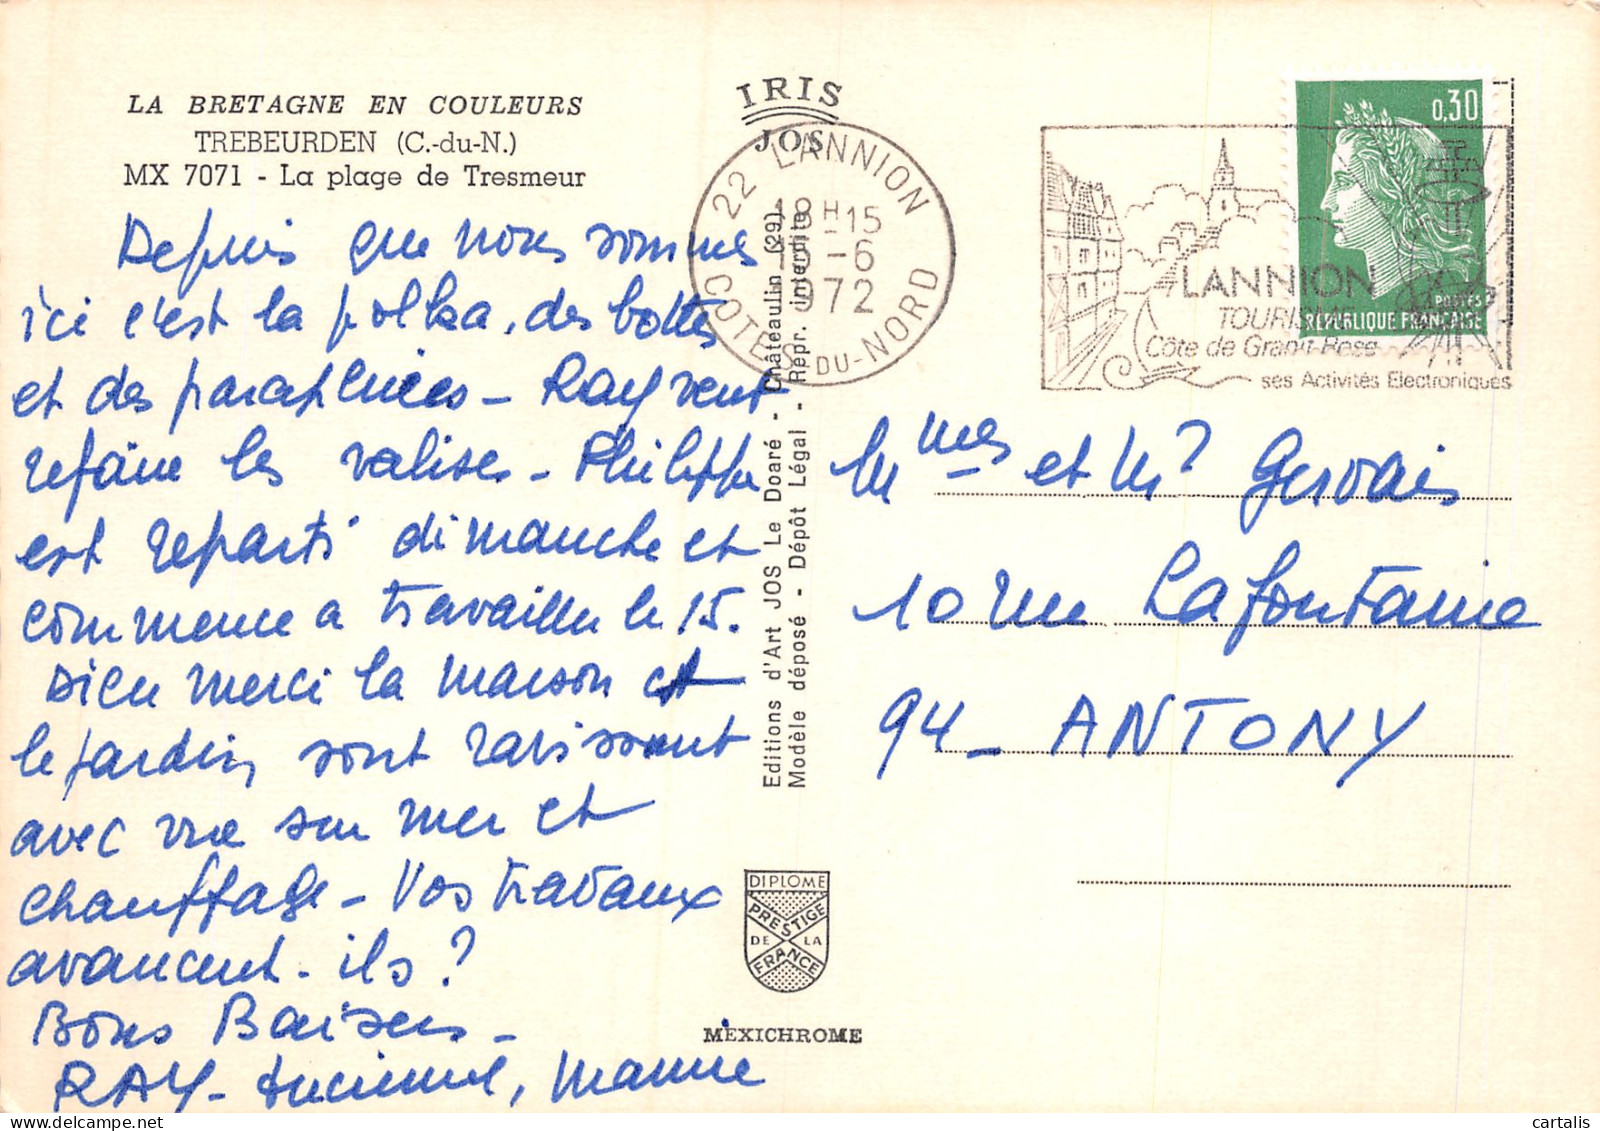 LA BRETAGNE EN COULEURS
TREBEURDEN (C.-du-N.)
MX 7071 - La plage de Tresmeur
Depuis que nous sommes
ici c'est la polka, des bottes
et des parapluies - Ray veut
refaire les valises - Philippe
est reparti dimanche et
commence a travailler le 15.
Dieu merci la maison et
le jardin sont ravissant
avec vue sur mer et
chauffage - Vos travaux
avancent-ils ?
Bons Baisers -
RAY - Lucienne,
IRIS
JOS
22 LANNION
18H15
-6
1972
COTES-DU-NORD
Editions d'Art JOS Le Doaré - Châteaulin (29)
Modèle déposé - Dépôt Légal - Repr. interdite
DIPLOME
PRESTIGE
DE LA
FRANCE
MEXICHROME
LANNION
TOURISME
Côte de Granit Rose
ses Activités Electroniques
0,30
POSTES
REPUBLIQUE FRANÇAISE
Mmes et Mr Gervais
10 rue Lafontaine
94 - ANTONY
cartalis